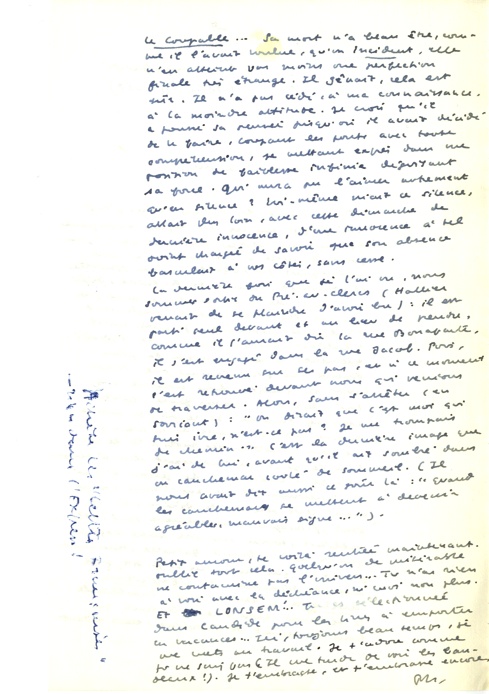 Le Coupable... Sa mort n'a beau être, com-
me il l'avait voulue, qu'un Incident, elle
n'en atteint pas moins une perfection
finale si étrange. Il gênait, cela est
sûr. Il n'a pas cédé, à ma connaissance,
à la moindre attitude. Je crois qu'il
a poussé sa pensée jusqu'où il avait décidé
de le faire, coupant les ponts avec toute
compréhension, se mettant exprès dans une
position de faiblesse infinie déjouant
sa force. Qui aura pu l'aimer autrement
qu'en silence ? Lui-même niait ce silence,
allait plus loin, avec cette démarche de
dernière innocence, d'une innocence à tel
point chargée de savoir que son absence
basculait à vos côtés, sans cesse.
La dernière fois que je l'ai vu, nous
sommes sortis du Pré-au-clercs (Hallier
venait de se plaindre d'avoir bu) : il est
parti seul devant et au lieu de prendre,
comme il l'aurait dû la rue Bonaparte,
il s'est engagé dans la rue Jacob. Puis,
il est revenu sur ses pas, et à ce moment
s'est retrouvé devant nous qui venions
de traverser. Alors, sans s'arrêter (en
souriant) : "on dirait que c'est moi qui
suis ivre, n'est-ce pas ? Je me trompais
de chemin". C'est la dernière image que
j'ai de lui, avant qu'il ait sombré dans
un cauchemar de sommeil. (Il
nous avait dit aussi ce soir là : "Quand
les cauchemars se mettent à devenir
agréables, mauvais signe...").
Petit amour, te voilà rentrée maintenant.
Oublie tout cela. quelqu'un de misérable
ne contamine pas l'univers... Tu n'as rien
à voir avec la déchéance, ni moi non plus.
Et LONSEM...
dans Candide pour les livres à emporter
en vacances... Ici, toujours beau temps, je
me mets au travail. Je t'adore comme
tu ne sais pas
deux !). Je t'embrasse, et t'embrasse encore
Ph.
dans l'Express !